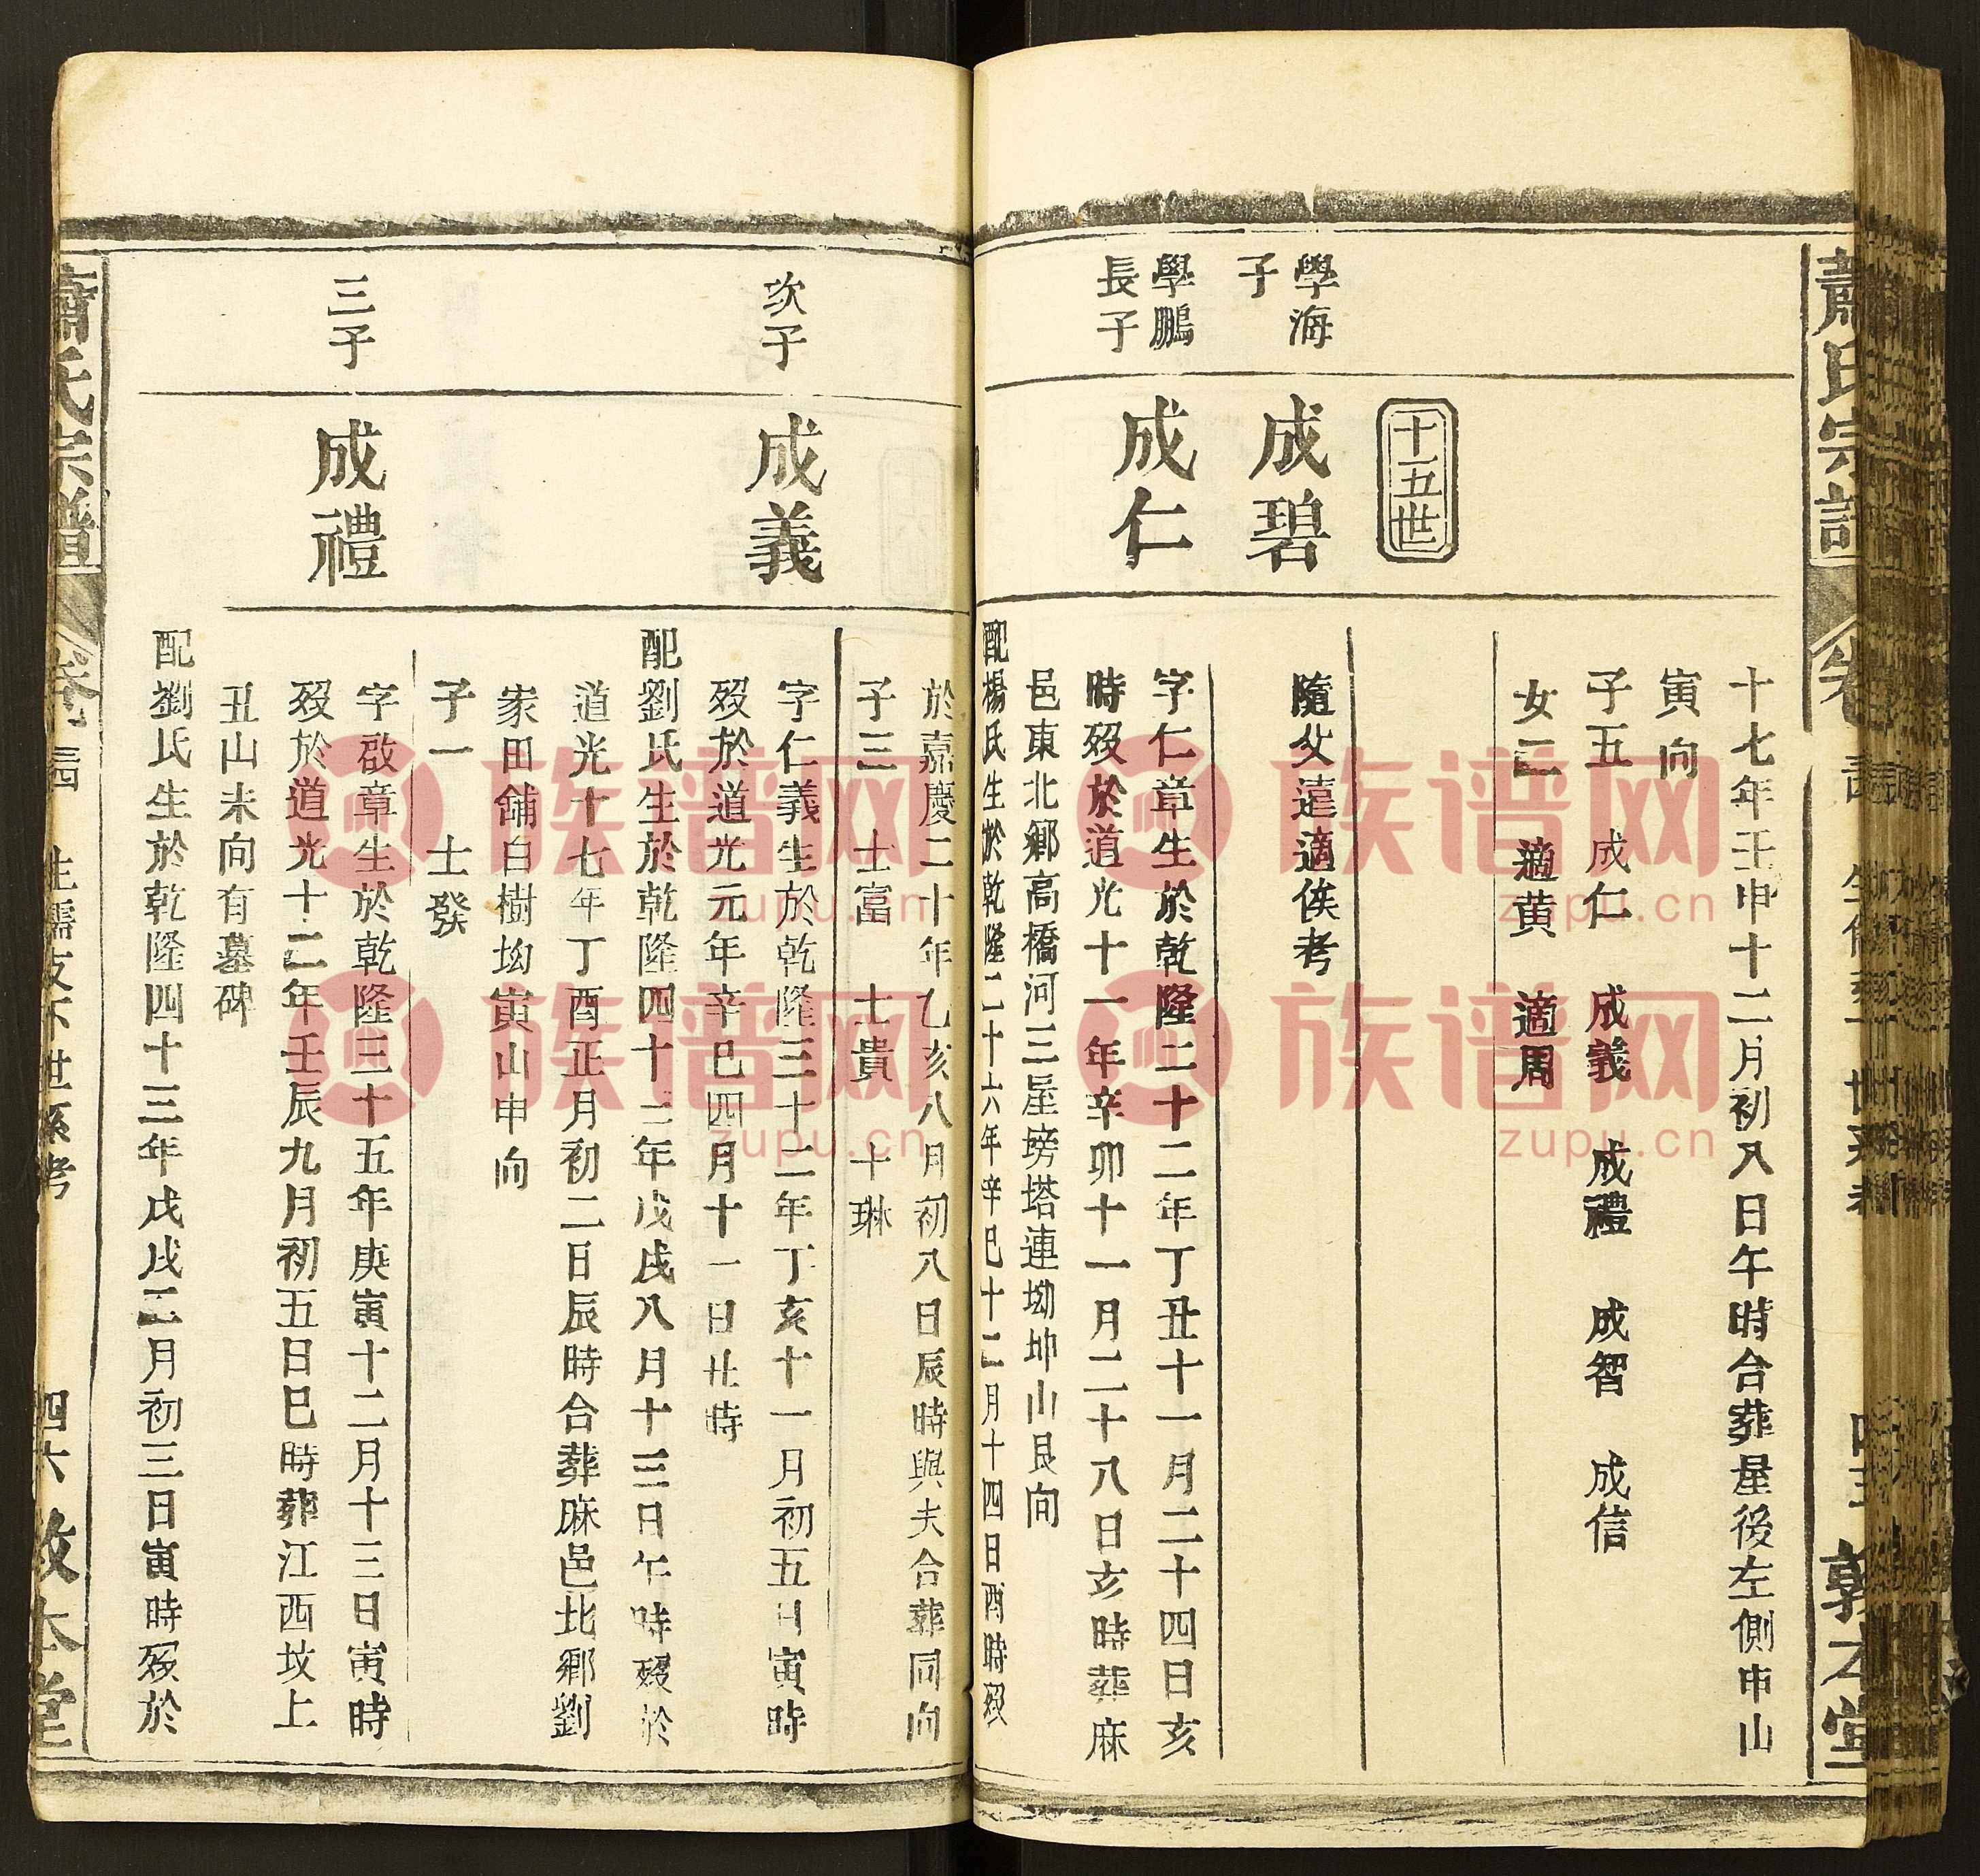 蕭氏宗譜
十七年壬申十二月初八日午時合葬屋後左側申山
寅向
子五 成仁 成義 成禮 成智 成信
女二 適黃 適周
十五世
學海
子
成碧
隨父遠適俟考
學鵬
長子
成仁
字仁章生於乾隆二十二年丁丑十一月二十四日亥
時歿於道光十一年辛卯十一月二十八日亥時葬麻
邑東北鄉高橋河三屋塝塔連坳坤山艮向
配楊氏生於乾隆二十六年辛巳十二月十四日酉時歿
於嘉慶二十年乙亥八月初八日辰時與夫合葬同向
子三 士富 士貴 士琳
次子
成義
字仁義生於乾隆三十二年丁亥十一月初五日寅時
歿於道光元年辛巳四月十一日丑時
配劉氏生於乾隆四十三年戊戌八月十三日午時歿於
道光十七年丁酉正月初二日辰時合葬麻邑北鄉劉
家田舖白樹坳寅山申向
子一 士發
三子
成禮
字啟章生於乾隆三十五年庚寅十二月十三日寅時
歿於道光十二年壬辰九月初五日巳時葬江西坟上
丑山未向有墓碑
配劉氏生於乾隆四十三年戊戌二月初三日寅時歿於
蕭氏宗譜 卷 生儒支下世系考 四六 敦本堂
族谱网
zupu.cn
族谱网
zupu.cn
族谱网
zupu.cn
族谱网
zupu.cn